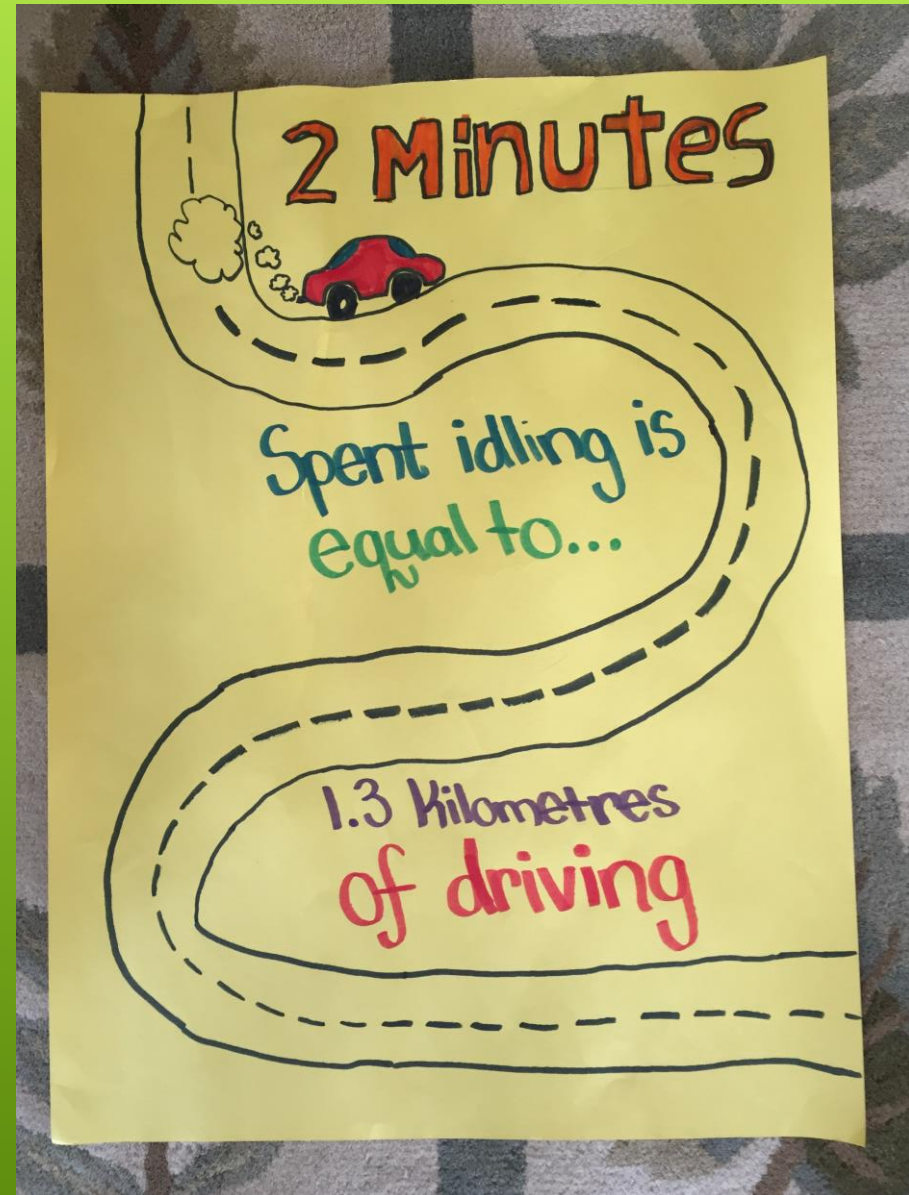 2 Minutes
Spent idling is
equal to...
1.3 Kilometres
of driving